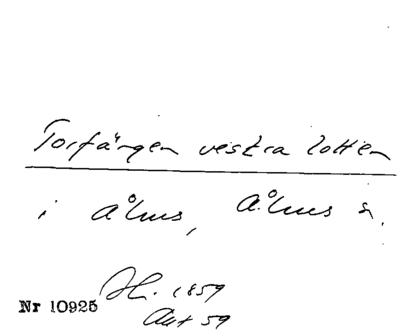 Torfängen vestra lotten
i Ålhus, Ålhus s.
H. 1859
Nr 10925
Akt 59